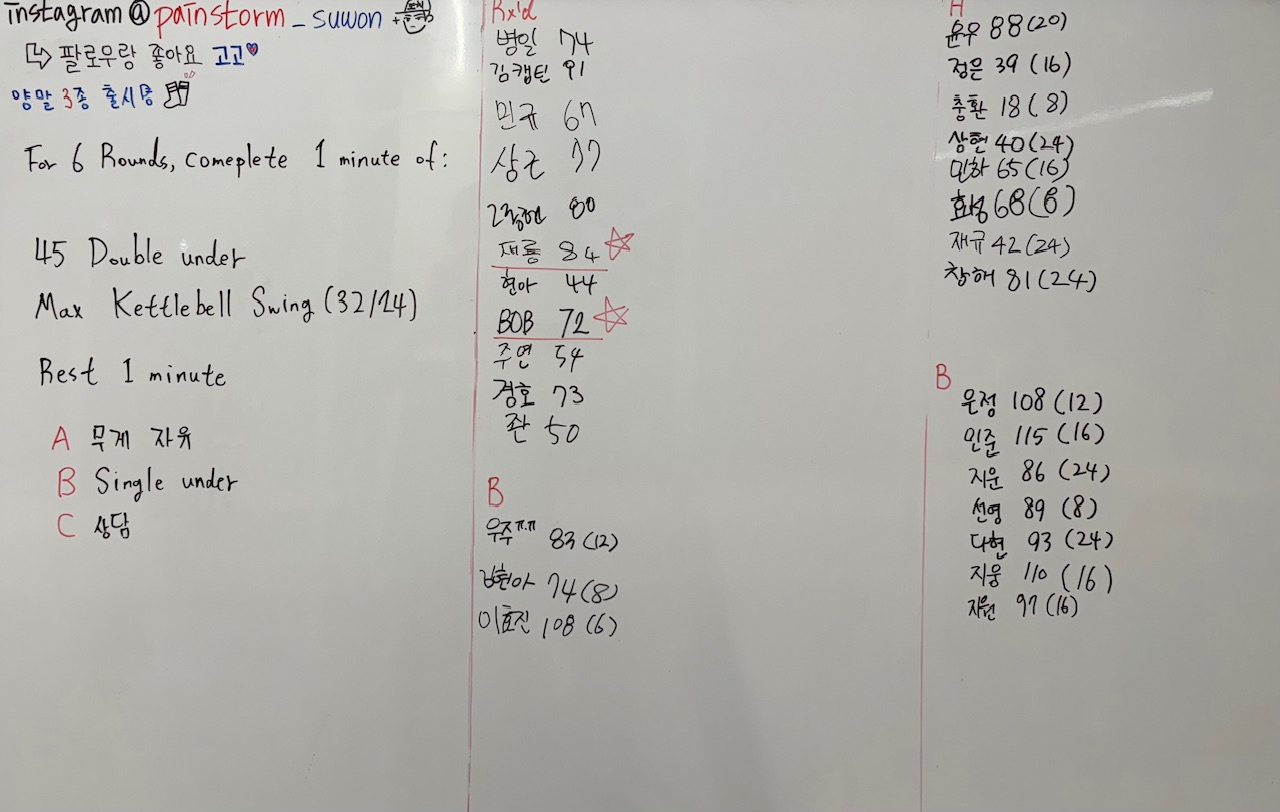 instagram @ painstorm_suwon +
팔로우랑 좋아요 고고
양말 3종 출시중
For 6 Rounds, comeplete 1 minute of:
45 Double under
Max Kettlebell Swing (32/24)
Rest 1 minute
A 무게 자유
B Single under
C 상담
Rx'd
병일 74
김캡틴 91
민규 67
상근 77
80
재룡 84
현아 44
BOB 72
주연 54
경호 73
좐 50
B
우주ㅠㅠ 83 (12)
김현아 74 (8)
이효진 108 (6)
A
윤우 88 (20)
정은 39 (16)
충환 18 (8)
상현 40 (24)
민하 65 (16)
효성 68 (8)
재규 42 (24)
창해 81 (24)
B
은정 108 (12)
인준 115 (16)
지운 86 (24)
선영 89 (8)
다현 93 (24)
지웅 110 (16)
지원 97 (16)